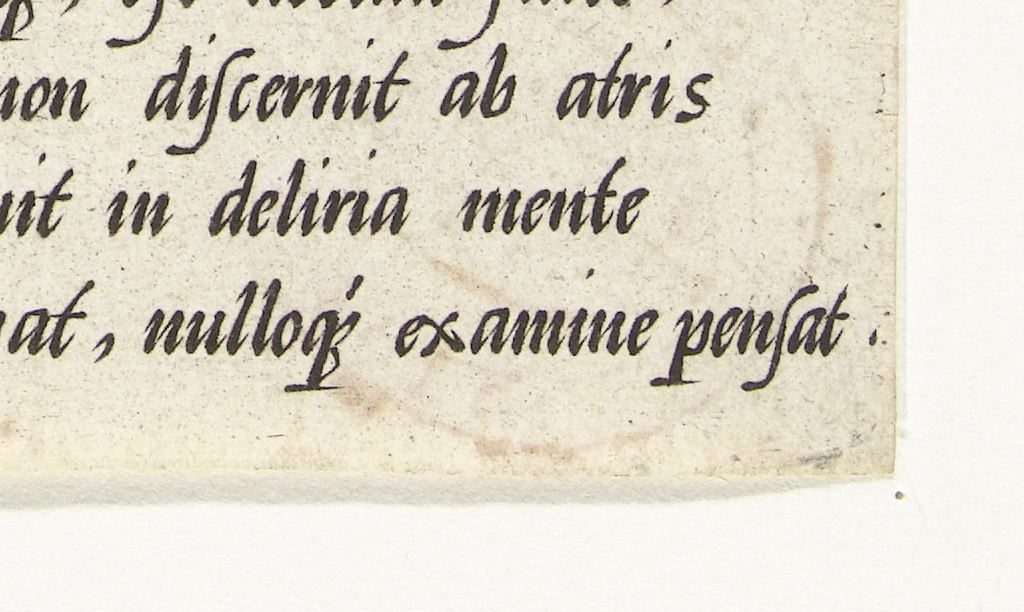 non diſcernit ab atris
in deliria mente
, nulloq́ꝫ examine penſat.